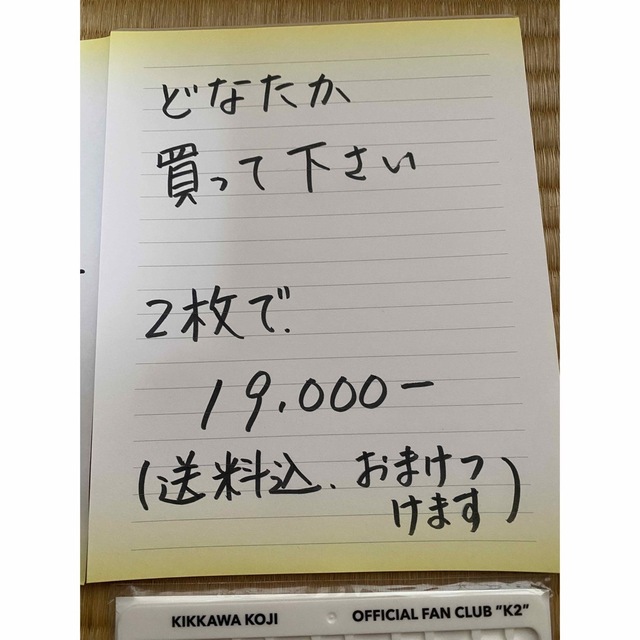 どなたか
買って下さい
2枚で.
19.000ー
(送料込、おまけつ
けます)
KIKKAWA KOJI OFFICIAL FAN CLUB "K2"